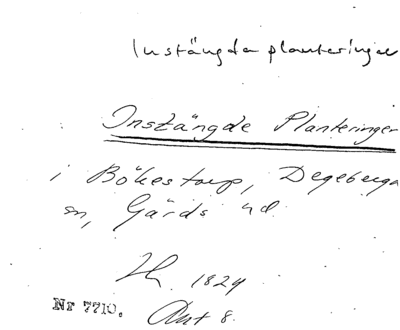 Instängda planteringar
Instängde Planteringer
i Bökestorp, Degeberga
sn, Gärds hd
1824
Nr 7710. Ant 8.